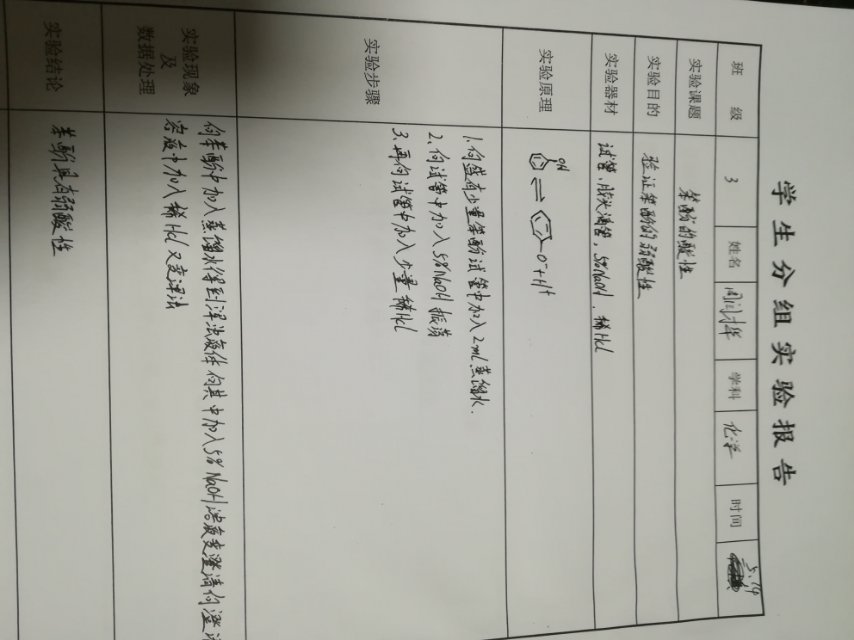 学生分组实验报告
班 级 3 姓名 学科 化学 时间 5.14
实验课题 苯酚的酸性
实验目的 验证苯酚的弱酸性
实验器材 试管、胶头滴管、5%NaOH、稀Hcl
实验原理 OH ⇌ O⁻+H⁺
实验步骤
1、向盛有少量苯酚试管中加入2mL蒸馏水.
2、向试管中加入5%NaOH振荡
3、再向试管中加入少量稀Hcl
实验现象
及
数据处理
向苯酚中加入蒸馏水得到浑浊液体向其中加入5%NaOH溶液变澄清向澄清
溶液中加入稀Hcl又变浑浊
实验结论 苯酚具有弱酸性